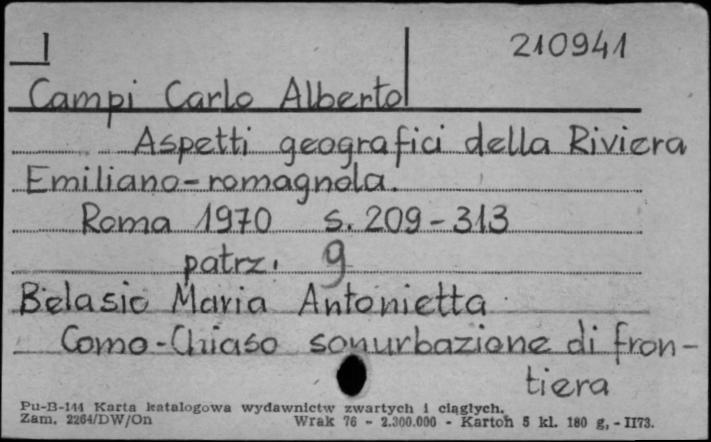 I 210941
Campi Carlo Alberto
Aspetti geografici della Riviera
Emiliano-romagnola.
Roma 1970 s. 209-313
patrz. 9
Belasio Maria Antonietta
Como-Chiaso sonurbazione di fron-
tiera
Pu-B-144 Karta katalogowa wydawnictw zwartych i ciągłych.
Zam. 2264/DW/On Wrak 76 - 2.300.000 - Kartoh 5 kl. 180 g, - II73.